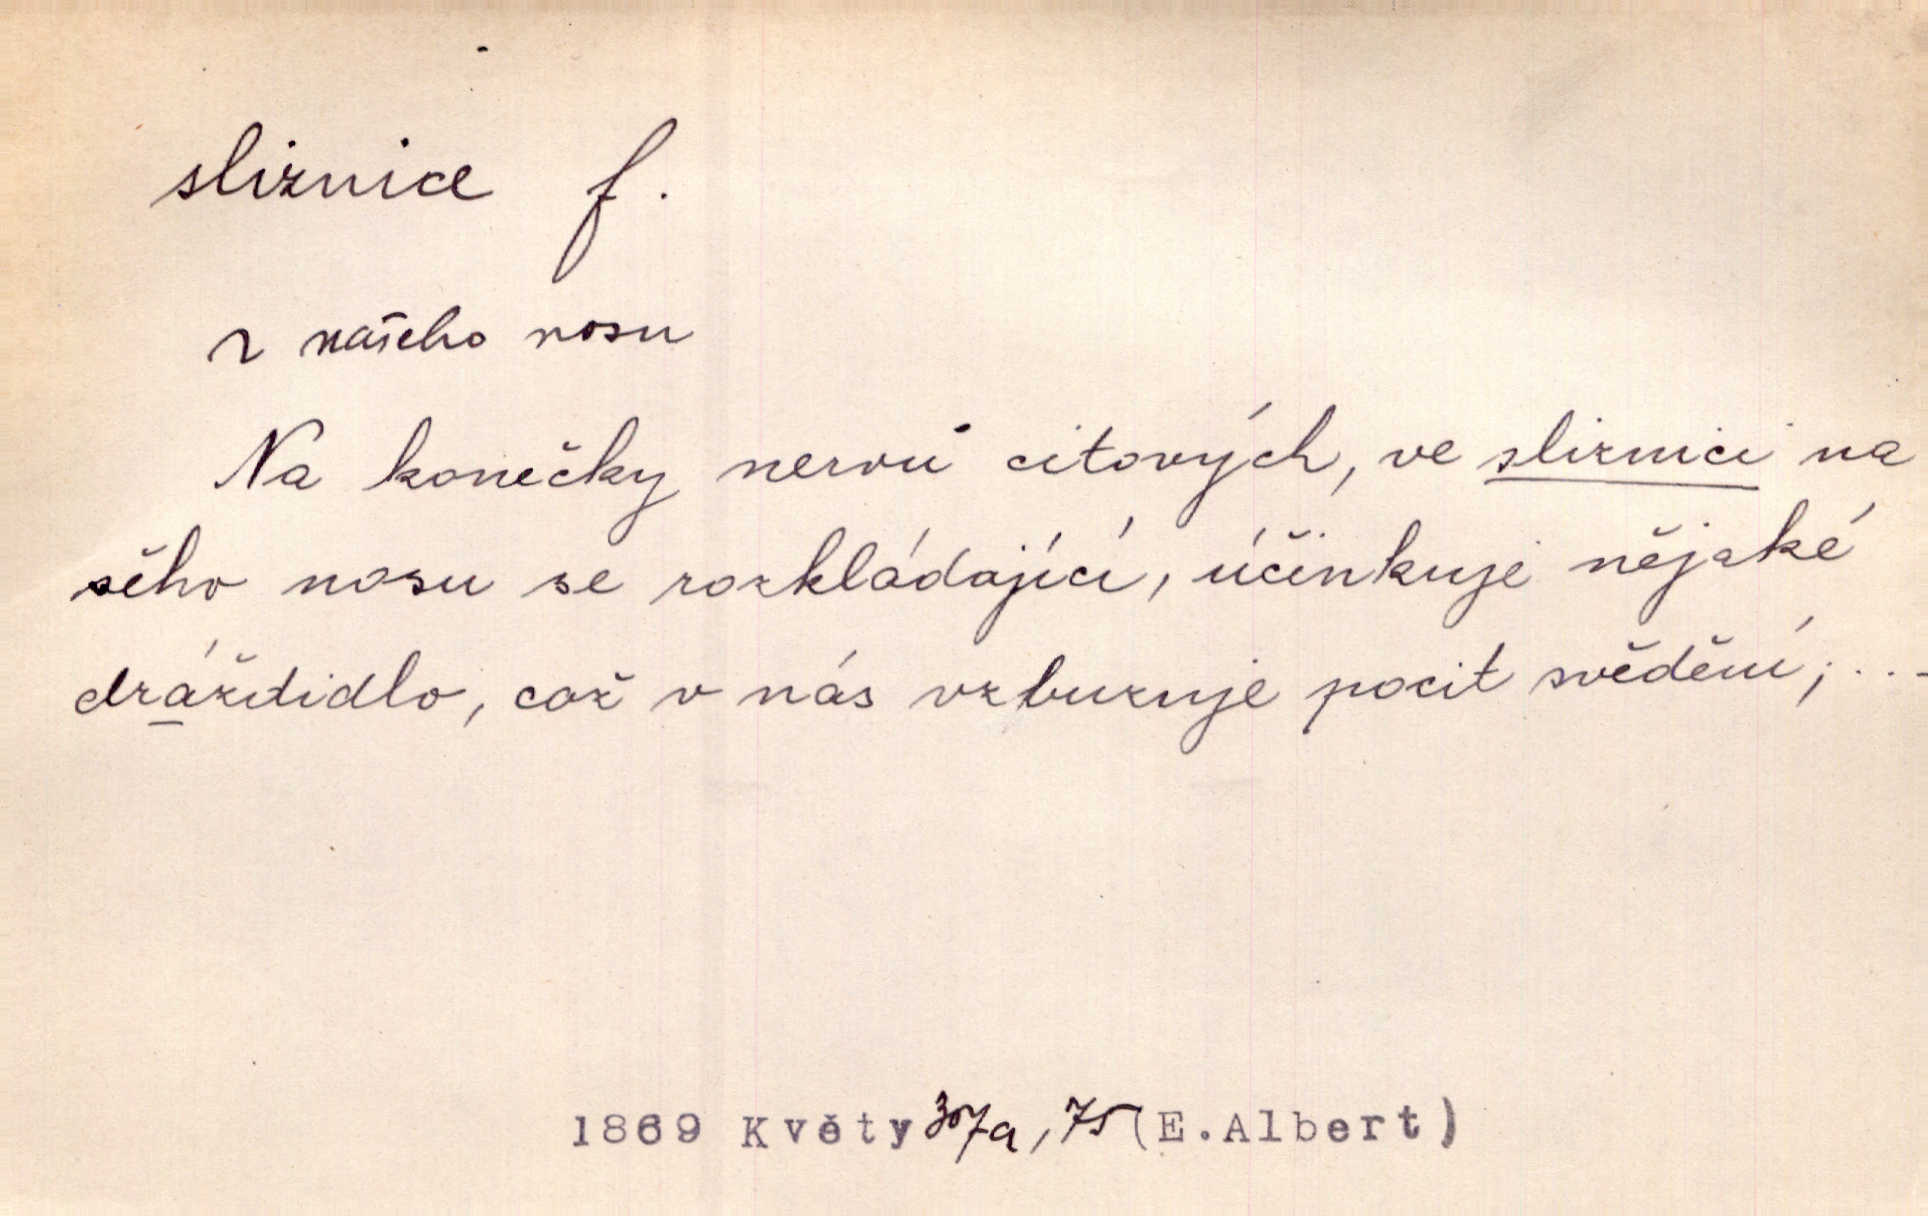 sliznice f.
z našeho nosu
Na konečky nervů citových, ve sliznici na
šeho nosu se rozkládající, účinkuje nějaké
dráždidlo, což v nás vzbuzuje pocit svědění; ...
1869 Květy 307a, 75 (E. Albert)